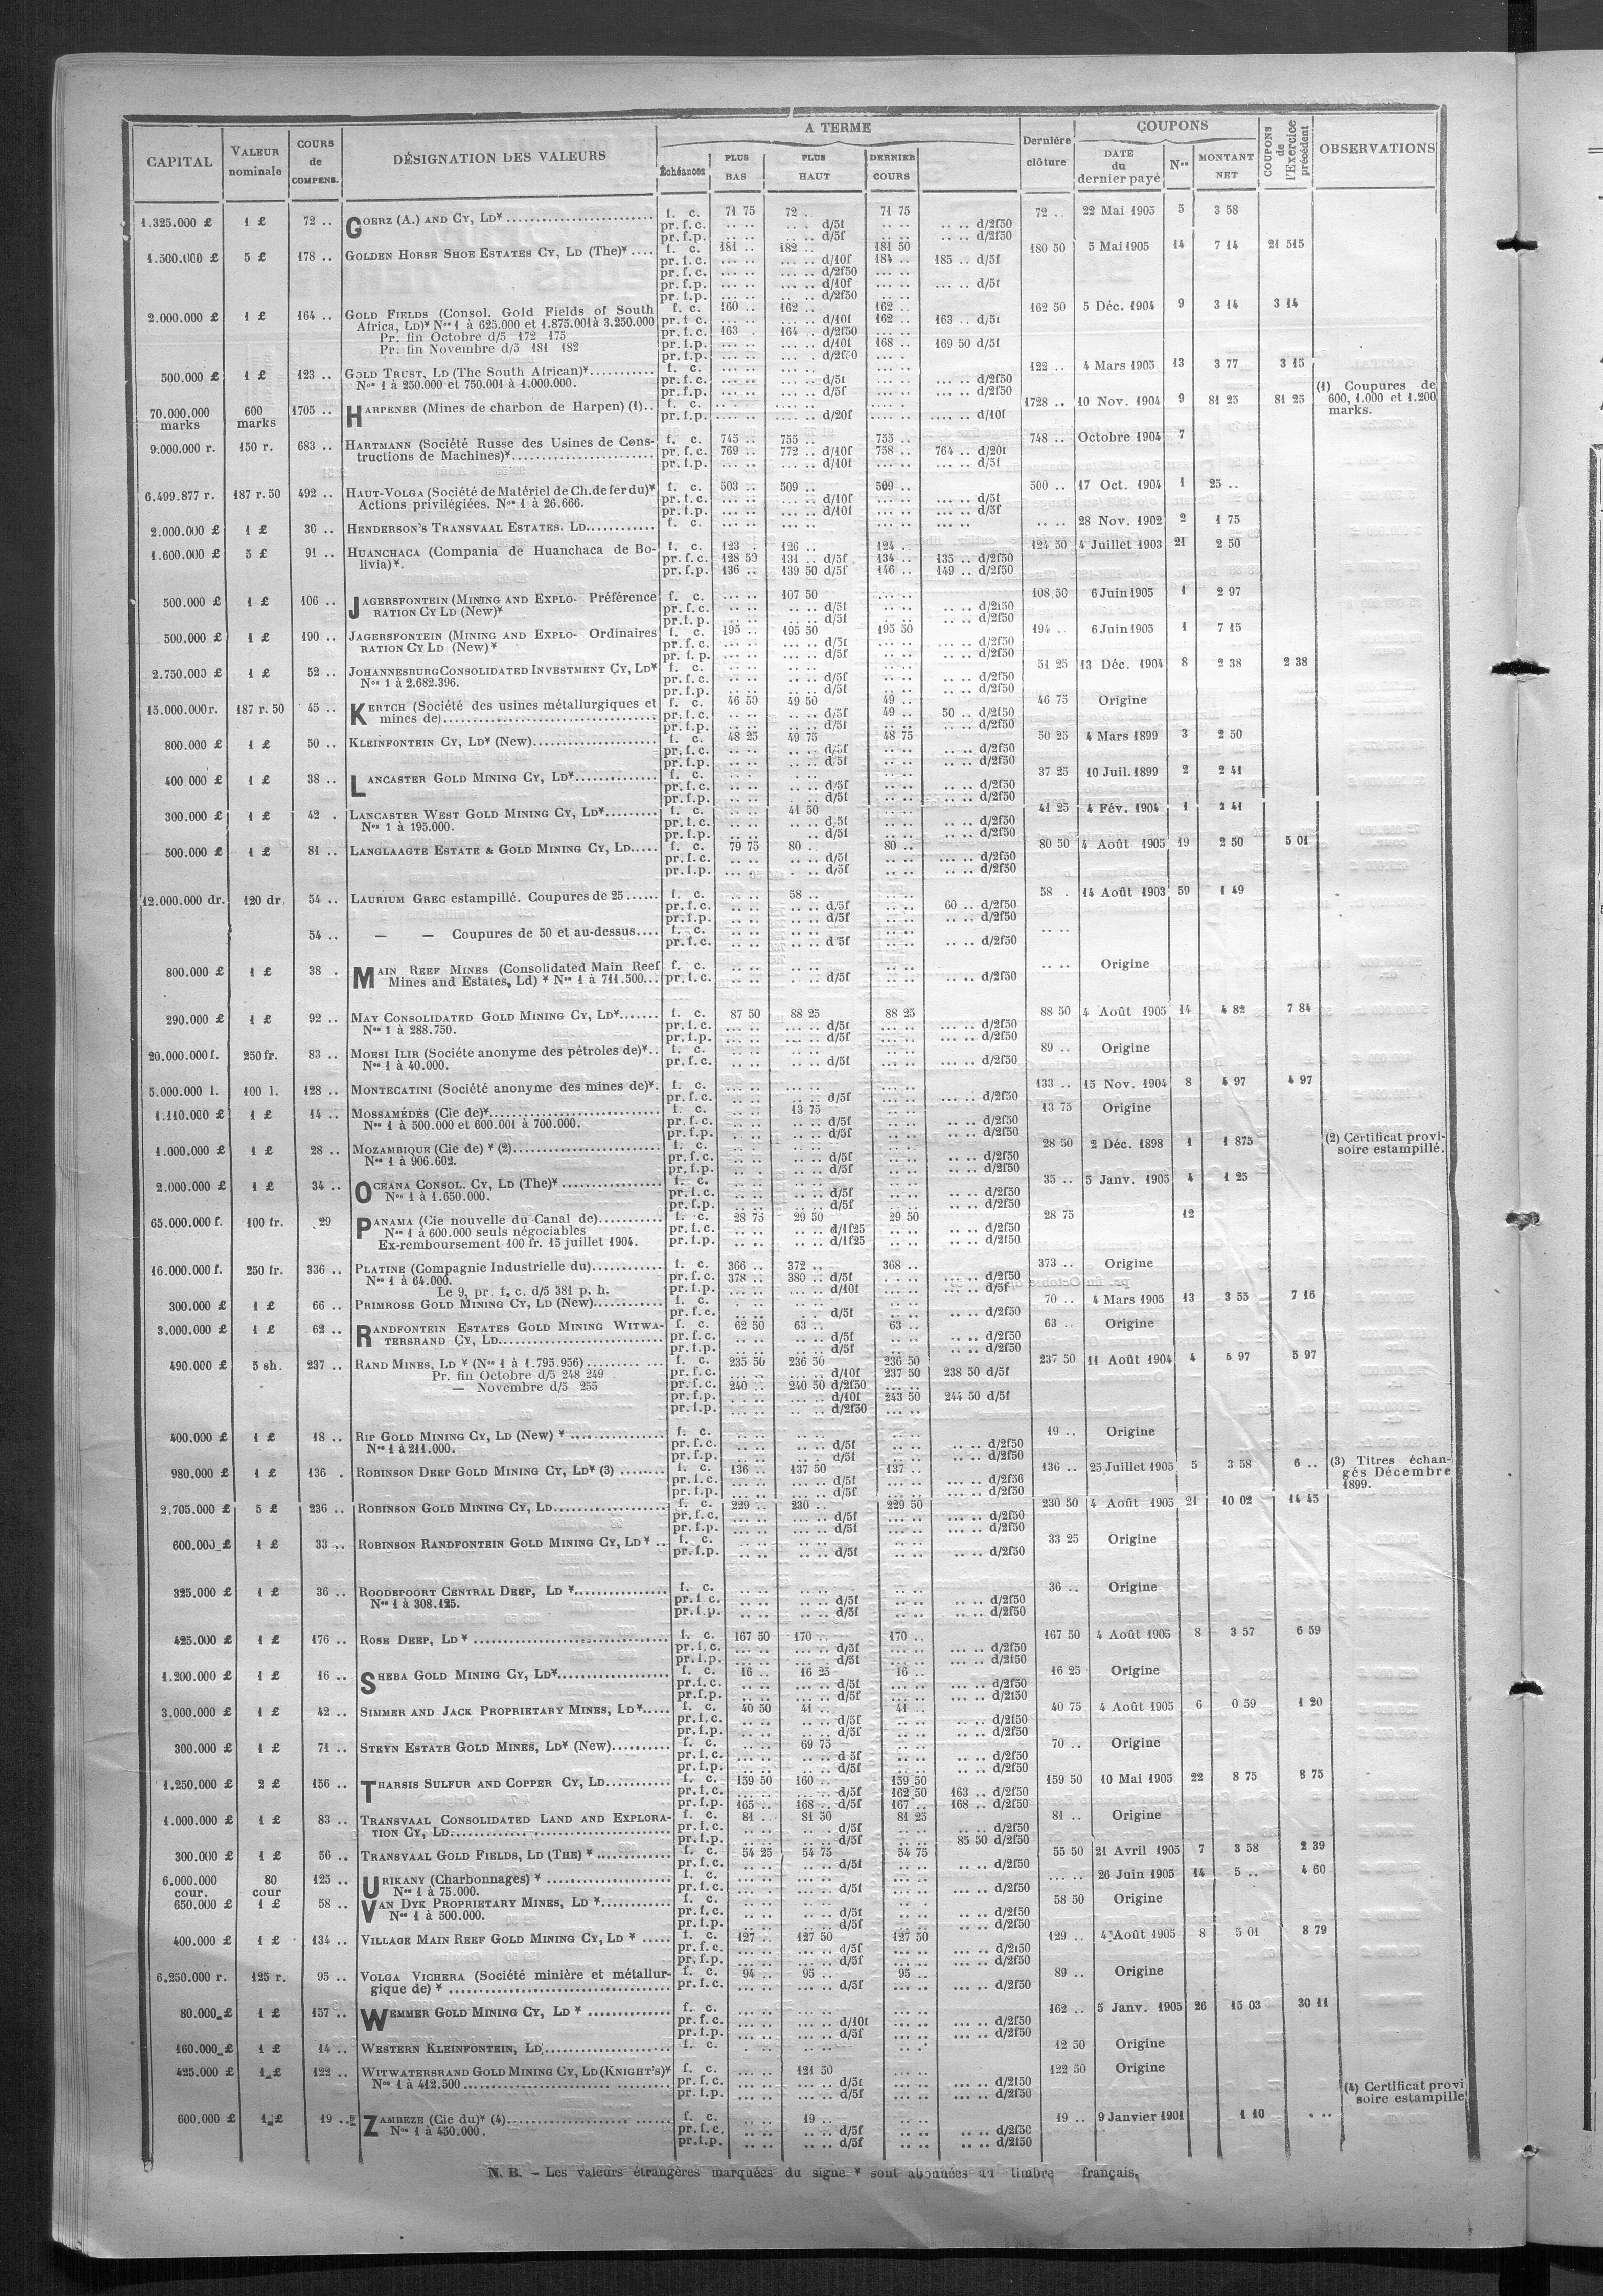 CAPITAL | VALEUR nominale | COURS de COMPENS. | DÉSIGNATION DES VALEURS | A TERME | Échéances | PLUS BAS | PLUS HAUT | DERNIER COURS | Dernière clôture | COUPONS | DATE du dernier payé | Nos | MONTANT NET | COUPONS de l'Exercice précédent | OBSERVATIONS
1.325.000 £ 1 £ 72 .. GOERZ (A.) AND CY, LD* f. c. 71 75 72 .. 71 75 72 .. 22 Mai 1905 5 3 58
pr. f. c. .. .. .. . d/5f .. .. .. .. d/2f50
pr. f. p. .. .. .. .. d/5f .. .. .. .. d/2f50
1.500.000 £ 5 £ 178 .. GOLDEN HORSE SHOE ESTATES CY, LD (The)* .... f. c. 181 .. 182 .. 181 50 180 50 5 Mai 1905 14 7 14 21 515
pr. f. c. ... .. ... .. d/10f 184 .. 185 .. d/5f
pr. f. c. ... .. ... .. d/2f50 ... ..
pr. f. p. ... .. ... .. d/10f ... .. ... .. d/5f
pr. f. p. ... .. ... .. d/2f50 ... ..
2.000.000 £ 1 £ 164 .. GOLD FIELDS (Consol. Gold Fields of South f. c. 160 .. 162 .. 162 .. 162 50 5 Déc. 1904 9 3 14 3 14
Africa, LD)* Nos 1 à 625.000 et 1.875.001 à 3.250.000 pr. f. c. ... .. ... .. d/10f 162 .. 163 .. d/5f
Pr. fin Octobre d/5 172 175 pr. f. c. 163 . 164 .. d/2f50 ... ..
Pr. fin Novembre d/5 181 182 pr. f. p. ... .. ... .. d/10f 168 .. 169 50 d/5f
pr. f. p. ... .. ... . d/2f50 ... .
500.000 £ 1 £ 123 .. GOLD TRUST, LD (The South African)* f. c. ... .. ... .. ... .. 122 .. 4 Mars 1905 13 3 77 3 15
Nos 1 à 250.000 et 750.001 à 1.000.000. pr. f. c. ... .. ... .. d/5f ... .. ... .. d/2f50
pr. f. p. ... .. ... .. d/5f ... .. ... .. d/2f50
70.000.000 marks 600 marks 1705 .. HARPENER (Mines de charbon de Harpen) (1).. f. c. ... .. .... .. .... .. 1728 .. 10 Nov. 1904 9 81 25 81 25 (1) Coupures de 600, 1.000 et 1.200 marks.
pr. f. p. .... .. .... .. d/20f .... .. .... .. d/10f
9.000.000 r. 150 r. 683 .. HARTMANN (Société Russe des Usines de Cons- f. c. 745 .. 755 .. 755 .. 748 .. Octobre 1904 7
tructions de Machines)* pr. f. c. 769 .. 772 .. d/10f 758 .. 764 .. d/20f
pr. f. p. ... .. ... .. d/10f ... .. ... .. d/5f
6.499.877 r. 187 r. 50 492 .. HAUT-VOLGA (Société de Matériel de Ch. de fer du)* f. c. 503 .. 509 .. 509 .. 500 .. 17 Oct. 1904 1 25 ..
Actions privilégiées. Nos 1 à 26.666. pr. f. c. ... .. ... .. d/10f ... .. ... .. d/5f
pr. f. p. ... .. ... .. d/10f ... .. ... .. d/5f
2.000.000 £ 1 £ 36 .. HENDERSON'S TRANSVAAL ESTATES. LD f. c. ... .. ... .. ... .. .. .. 28 Nov. 1902 2 1 75
1.600.000 £ 5 £ 91 .. HUANCHACA (Compania de Huanchaca de Bo- f. c. 123 . 126 .. 124 .. 124 50 4 Juillet 1903 21 2 50
livia)*. pr. f. c. 128 50 131 .. d/5f 134 .. 135 .. d/2f50
pr. f. p. 136 .. 139 50 d/5f 146 .. 149 .. d/2f50
500.000 £ 1 £ 106 .. JAGERSFONTEIN (MINING AND EXPLO- Préférence f. c. ... .. 107 50 ... .. 108 50 6 Juin 1905 1 2 97
RATION CY LD (New)* pr. f. c. .. .. .. .. d/5f .. .. .. .. d/2f50
pr. f. p. .. .. .. .. d/5f .. .. .. .. d/2f50
500.000 £ 1 £ 190 .. JAGERSFONTEIN (MINING AND EXPLO- Ordinaires f. c. 195 .. 195 50 195 50 194 .. 6 Juin 1905 1 7 15
RATION CY LD (New)* pr. f. c. ... .. ... .. d/5f ... .. ... .. d/2f50
pr. f. p. ... .. ... .. d/5f ... .. .. .. d/2f50
2.750.000 £ 1 £ 52 .. JOHANNESBURG CONSOLIDATED INVESTMENT CY, LD* f. c. .. .. .. .. .. .. 51 25 13 Déc. 1904 8 2 38 2 38
Nos 1 à 2.682.396. pr. f. c. .. .. .. .. d/5f .. .. .. .. d/2f50
pr. f. p. .. .. .. .. d/5f .. .. .. .. d/2f50
15.000.000 r. 187 r. 50 45 .. KERTCH (Société des usines métallurgiques et f. c. 46 50 49 50 49 .. 46 75 Origine
mines de) pr. f. c. .. .. .. .. d/5f 49 .. 50 .. d/2f50
pr. f. p. .. .. .. .. d/5f .. .. .. .. d/2f50
800.000 £ 1 £ 50 .. KLEINFONTEIN CY, LD* (New) f. c. 48 25 49 75 48 75 50 25 4 Mars 1899 3 2 50
pr. f. c. .. .. .. .. d/5f .. .. .. .. d/2f50
pr. f. p. .. .. .. .. d/5f .. .. .. .. d/2f50
400 000 £ 1 £ 38 .. LANCASTER GOLD MINING CY, LD* f. c. .. .. .. .. .. .. 37 25 10 Juil. 1899 2 2 41
pr. f. c. .. .. .. .. d/5f .. .. .. .. d/2f50
pr. f. p. .. .. .. .. d/5f .. .. .. .. d/2f50
300.000 £ 1 £ 42 . LANCASTER WEST GOLD MINING CY, LD* f. c. .. .. 41 50 .. .. 41 25 4 Fév. 1904 1 2 41
Nos 1 à 195.000. pr. f. c. .. .. .. .. d/5f .. .. .. .. d/2f50
pr. f. p. .. .. .. .. d/5f .. .. .. .. d/2f50
500.000 £ 1 £ 81 .. LANGLAAGTE ESTATE & GOLD MINING CY, LD f. c. 79 75 80 .. 80 .. 80 50 4 Août 1905 19 2 50 5 01
pr. f. c. .. .. .. .. d/5f .. .. ... .. d/2f50
pr. f. p. ... .. . .. d/5f .. .. .. .. d/2f50
12.000.000 dr. 120 dr. 54 .. LAURIUM GREC estampillé. Coupures de 25 f. c. .. .. 58 .. .. .. 58 . 14 Août 1903 59 1 49
pr. f. c. .. .. .. .. d/5f .. .. 60 .. d/2f50
pr. f. p. .. .. .. .. d/5f .. .. .. .. d/2f50
54 .. — — Coupures de 50 et au-dessus.... f. c. .. .. .. .. .. .. .. ..
pr. f. c. .. .. .. .. d/5f .. .. .. .. d/2f50
800.000 £ 1 £ 38 . MAIN REEF MINES (Consolidated Main Reef f. c. .. .. .. .. .. .. .. .. Origine
Mines and Estates, Ld) * Nos 1 à 711.500... pr. f. c. .. .. . .. d/5f .. .. .. .. d/2f50
290.000 £ 1 £ 92 .. MAY CONSOLIDATED GOLD MINING CY, LD* f. c. 87 50 88 25 88 25 88 50 4 Août 1905 14 4 82 7 84
Nos 1 à 288.750. pr. f. c. ... .. ... .. d/5f ... .. ... .. d/2f50
pr. f. p. ... .. ... .. d/5f ... .. ... .. d/2f50
20.000.000 f. 250 fr. 83 .. MOESI ILIR (Sociéte anonyme des pétroles de)*.. f. c. .. .. .. .. .. .. 89 .. Origine
Nos 1 à 40.000. pr. f. c. .. .. .. .. d/5f .. .. ... .. d/2f50
5.000.000 l. 100 l. 128 .. MONTECATINI (Société anonyme des mines de)*. f. c. ... .. ... .. ... .. 133 .. 15 Nov. 1904 8 4 97 4 97
pr. f. c. .. .. ... .. d/5f .. .. ... .. d/2f50
1.110.000 £ 1 £ 14 .. MOSSAMÉDÈS (Cie de)* f. c. .. .. 13 75 .. .. 13 75 Origine
Nos 1 à 500.000 et 600.001 à 700.000. pr. f. c. .. .. .. .. d/5f .. .. .. .. d/2f50
pr. f. p. .. .. .. .. d/5f .. .. .. .. d/2f50
1.000.000 £ 1 £ 28 .. MOZAMBIQUE (Cie de) * (2) f. c. .. .. .. .. .. .. 28 50 2 Déc. 1898 1 1 875 (2) Certificat provi-soire estampillé.
Nos 1 à 906.602. pr. f. c. .. .. .. .. d/5f .. .. .. .. d/2f50
pr. f. p. .. . .. .. d/5f .. .. .. .. d/2f50
2.000.000 £ 1 £ 34 .. OCEANA CONSOL. CY, LD (The)* f. c. .. .. .. .. .. .. 35 .. 5 Janv. 1905 4 1 25
Nos 1 à 1.650.000. pr. f. c. .. .. .. .. d/5f .. .. .. .. d/2f50
pr. f. p. .. .. .. .. d/5f .. .. .. .. d/2f50
65.000.000 f. 100 fr. 29 PANAMA (Cie nouvelle du Canal de) f. c. 28 75 29 50 29 50 28 75 12
Nos 1 à 600.000 seuls négociables pr. f. c. .. .. .. .. d/1f25 .. .. .. .. d/2f50
Ex-remboursement 100 fr. 15 juillet 1904. pr. f. p. .. .. .. .. d/1f25 .. .. .. .. d/2f50
16.000.000 f. 250 fr. 336 .. PLATINE (Compagnie Industrielle du) f. c. 366 .. 372 .. 368 .. 373 .. Origine
Nos 1 à 64.000. pr. f. c. 378 .. 380 .. d/5f . .. .. ... .. d/2f50
Le 9, pr. f. c. d/5 381 p. h. pr. f. p. ... .. ... .. d/10f ... .. ... .. d/5f
300.000 £ 1 £ 66 .. PRIMROSE GOLD MINING CY, LD (New) f. c. . .. .. .. .. .. 70 .. 4 Mars 1905 13 3 55 7 16
pr. f. c. . .. .. .. d/5f .. .. ... .. d/2f50
3.000.000 £ 1 £ 62 .. RANDFONTEIN ESTATES GOLD MINING WITWA- f. c. 62 50 63 .. 63 .. 63 .. Origine
TERSRAND CY, LD pr. f. c. .. .. .. .. d/5f .. .. .. .. d/2f50
pr. f. p. .. .. .. .. d/5f .. .. .. .. d/2f50
490.000 £ 5 sh. 237 .. RAND MINES, LD * (Nos 1 à 1.795.956) f. c. 235 50 236 50 236 50 237 50 11 Août 1904 4 5 97 5 97
Pr. fin Octobre d/5 248 249 pr. f. c. ... .. ... .. d/10f 237 50 238 50 d/5f
— Novembre d/5 255 pr. f. c. 240 .. 240 50 d/2f50 ... ..
pr. f. p. ... .. ... .. d/10f 243 50 244 50 d/5f
pr. f. p. ... .. .. .. d/2f50 ... ..
400.000 £ 1 £ 18 .. RIP GOLD MINING CY, LD (New) * f. c. .. .. .. .. .. .. 19 .. Origine
Nos 1 à 211.000. pr. f. c. .. .. .. .. d/5f .. .. .. .. d/2f50
pr. f. p. .. .. .. .. d/5f .. .. .. .. d/2f50
980.000 £ 1 £ 136 . ROBINSON DEEP GOLD MINING CY, LD* (3) f. c. 136 .. 137 50 137 .. 136 .. 25 Juillet 1905 5 3 58 6 .. (3) Titres échan-gés Décembre 1899.
pr. f. c. ... .. ... .. d/5f ... .. ... .. d/2f50
pr. f. p. ... .. ... .. d/5f ... .. ... .. d/2f50
2.705.000 £ 5 £ 236 .. ROBINSON GOLD MINING CY, LD f. c. 229 .. 230 .. 229 50 230 50 4 Août 1905 21 10 02 14 45
pr. f. c. ... .. ... .. d/5f ... .. ... .. d/2f50
pr. f. p. ... .. ... .. d/5f ... .. ... .. d/2f50
600.000 £ 1 £ 33 .. ROBINSON RANDFONTEIN GOLD MINING CY, LD * .. f. c. .. .. .. .. .. .. 33 25 Origine
pr. f. p. .. .. .. .. d/5f .. .. .. .. d/2f50
325.000 £ 1 £ 36 .. ROODEPOORT CENTRAL DEEP, LD * f. c. .. .. .. .. .. .. 36 .. Origine
Nos 1 à 308.125. pr. f. c. .. .. .. .. d/5f .. .. .. .. d/2f50
pr. f. p. .. .. .. .. d/5f .. .. .. .. d/2f50
425.000 £ 1 £ 176 .. ROSE DEEP, LD * f. c. 167 50 170 .. 170 .. 167 50 4 Août 1905 8 3 57 6 59
pr. f. c. ... .. ... .. d/5f ... .. ... .. d/2f50
pr. f. p. ... .. ... .. d/5f ... .. ... .. d/2f50
1.200.000 £ 1 £ 16 .. SHEBA GOLD MINING CY, LD* f. c. 16 .. 16 25 16 .. 16 25 Origine
pr. f. c. .. .. .. .. d/5f .. .. ... .. d/2f50
pr. f. p. .. .. .. .. d/5f .. .. ... .. d/2f50
3.000.000 £ 1 £ 42 .. SIMMER AND JACK PROPRIETARY MINES, LD* f. c. 40 50 41 .. 41 .. 40 75 4 Août 1905 6 0 59 1 20
pr. f. c. .. .. .. .. d/5f .. .. .. .. d/2f50
pr. f. p. .. .. .. .. d/5f .. .. .. .. d/2f50
300.000 £ 1 £ 71 .. STEYN ESTATE GOLD MINES, LD* (New) f. c. .. .. 69 75 .. .. 70 .. Origine
pr. f. c. ... .. .. .. d/5f .. .. .. .. d/2f50
pr. f. p. .. .. .. .. d/5f .. .. .. .. d/2f50
1.250.000 £ 2 £ 156 .. THARSIS SULFUR AND COPPER CY, LD f. c. 159 50 160 .. 159 50 159 50 10 Mai 1905 22 8 75 8 75
pr. f. c. ... .. ... .. d/5f 162 50 163 .. d/2f50
pr. f. p. 165 .. 168 .. d/5f 167 .. 168 .. d/2f50
1.000.000 £ 1 £ 83 .. TRANSVAAL CONSOLIDATED LAND AND EXPLORA- f. c. 81 .. 81 50 81 25 81 .. Origine
TION CY, LD pr. f. c. .. .. .. .. d/5f .. .. .. .. d/2f50
pr. f. p. .. .. .. .. d/5f .. .. 85 50 d/2f50
300.000 £ 1 £ 56 .. TRANSVAAL GOLD FIELDS, LD (THE) * f. c. 54 25 54 75 54 75 55 50 21 Avril 1905 7 3 58 2 39
pr. f. c. .. .. .. .. d/5f .. .. .. .. d/2f50
6.000.000 cour. 80 cour 125 .. URIKANY (Charbonnages) * f. c. .. .. .. .. .. .. ... .. 26 Juin 1905 14 5 .. 4 60
Nos 1 à 75.000. pr. f. c. ... . ... .. d/5f ... .. ... .. d/2f50
650.000 £ 1 £ 58 .. VAN DYK PROPRIETARY MINES, LD * f. c. .. .. .. .. .. . 58 50 Origine
Nos 1 à 500.000. pr. f. c. .. .. .. .. d/5f .. .. .. .. d/2f50
pr. f. p. .. .. .. .. d/5f .. .. .. .. d/2f50
400.000 £ 1 £ 134 .. VILLAGE MAIN REEF GOLD MINING CY, LD * f. c. 127 .. 127 50 127 50 129 .. 4 Août 1905 8 5 01 8 79
pr. f. c. ... .. ... .. d/5f ... .. ... .. d/2f50
pr. f. p. ... .. ... .. d/5f ... .. ... .. d/2f50
6.250.000 r. 125 r. 95 .. VOLGA VICHERA (Société minière et métallur- f. c. 94 .. 95 .. 95 .. 89 .. Origine
gique de) * pr. f. c. ... .. ... .. d/5f ... .. ... .. d/2f50
80.000 £ 1 £ 157 .. WEMMER GOLD MINING CY, LD * f. c. ... .. ... .. ... .. 162 .. 5 Janv. 1905 26 15 03 30 11
pr. f. c. ... .. ... .. d/10f ... .. ... .. d/2f50
pr. f. p. ... .. ... .. d/5f ... .. ... .. d/2f50
160.000 £ 1 £ 14 .. WESTERN KLEINFONTEIN, LD f. c. . .. .. .. .. .. 12 50 Origine
425.000 £ 1 £ 122 .. WITWATERSRAND GOLD MINING CY, LD (KNIGHT'S)* f. c. ... .. 121 50 ... .. 122 50 Origine
Nos 1 à 412.500 pr. f. c. ... .. ... .. d/5f ... .. ... .. d/2f50
pr. f. p. ... .. ... .. d/5f ... .. ... .. d/2f50
(4) Certificat provi
soire estampillé
600.000 £ 1 £ 19 .. ZAMBEZE (Cie du)* (4) f. c. .. .. 19 .. .. .. 19 .. 9 Janvier 1901 1 10 . ..
Nos 1 à 450.000. pr. f. c. .. .. .. .. d/5f .. .. .. .. d/2f50
pr. f. p. .. .. .. .. d/5f .. .. .. .. d/2f50
N. B. — Les valeurs étrangères marquées du signe * sont abonnées au timbre français.